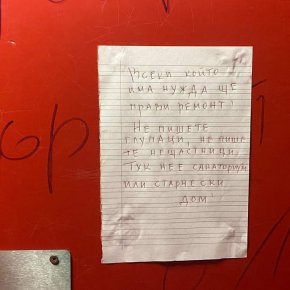 Всеки който
има нужда ще
прави ремонт!
Не пишете
глупаци, не пише
те нещастници
Тук не е санаториум
или старчески
дом!